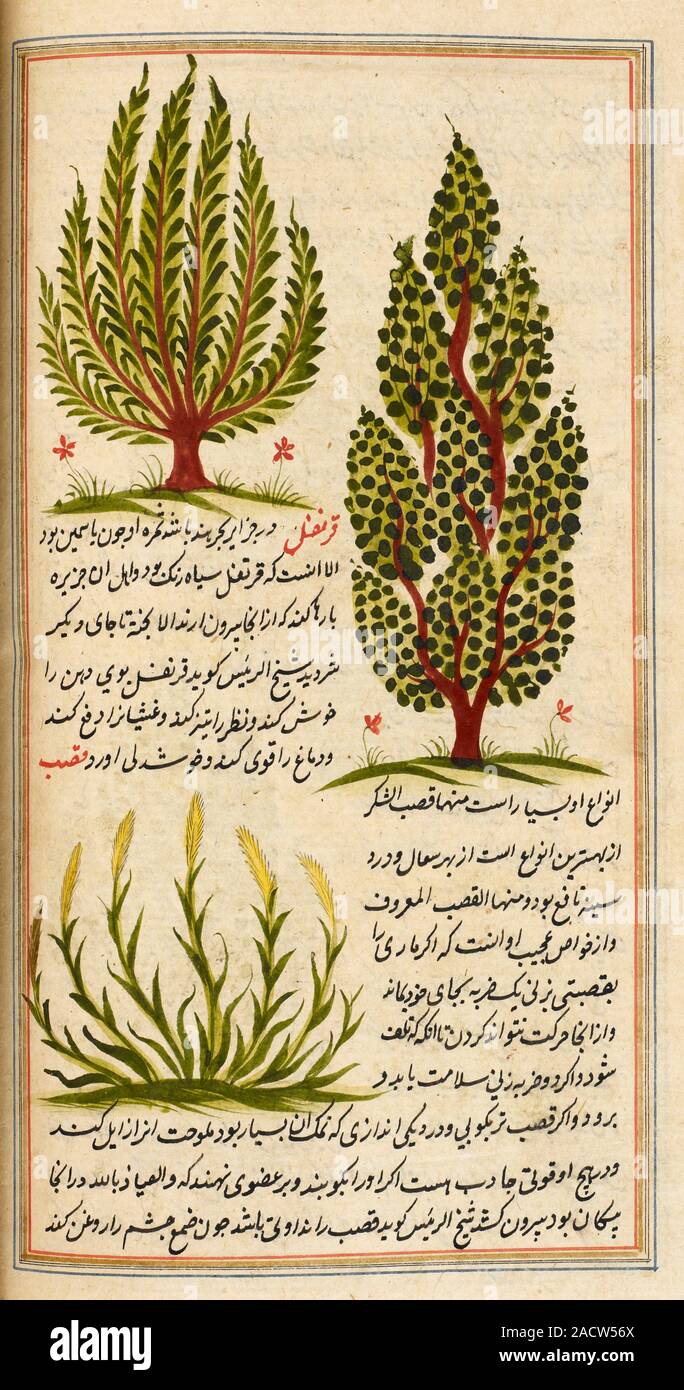 قرنفل در جزایر بحر هند باشد ثمره او چون یاسمین بود
الا انست که قرنفل سیاه رنک بود و اهل ان جزیره
بارها کنند که از انجا بیرون ارند الا تا جای دیکر
شیخ الرئیس کوید قرنفل بوی دهن را
خوش کند و نظر را تیز کند و غثیانرا دفع کند
و دماغ را قوی کند و خوشدلی اورد قصب
انواع او بسیار است منها قصب السّکر
از بهترین انواع است از بهر سعال و درد
سینه نافع بود و منها القصب المعروف
و از خواص عجیب او انست که اکر ماری را
بقصبتی بزنی یک ضربه بجای خود بماند
و از انجا حرکت نتواند کردن تا انکه تلف
شود و اکر دو ضربه زنی سلامت یابد و
برود و اکر قصب تر بکوبی و در دیکی اندازی که نمک ان بسیار بود ملوحت انرا زایل کند
و در بیخ او قوتی جاذب هست اکر او را بکوبند و بر عضوی نهند که و العیاذ بالله در انجا
پیکان بود بیرون کشد شیخ الرئیس کوید قصب را باشد چون چشم را روشن کند
alamy
Image ID: 2ACW56X
www.alamy.com